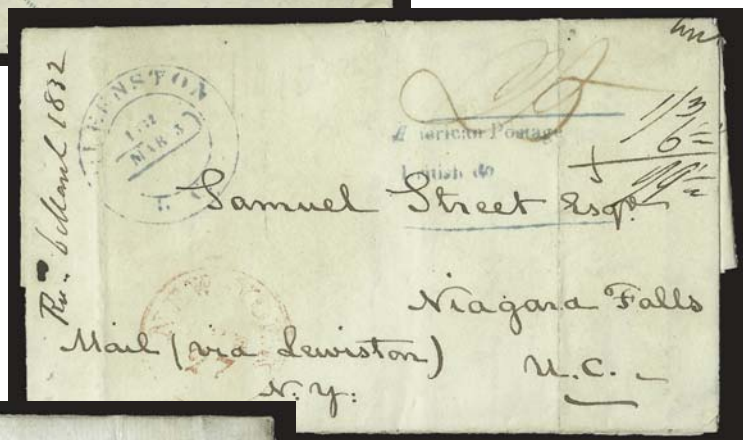 Rec. 6 March 1832
QUEENSTON
1832
MAR 3
U. C.
25
American Postage
British do
1/3
6
Samuel Street Esqr.
Niagara Falls
NEW YORK
27
Mail (via Lewiston)
U.C.
N.Y: